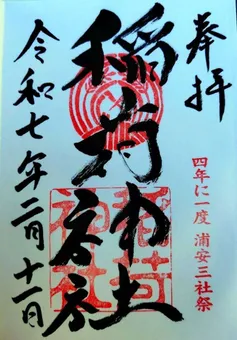 奉拝
四年に一度 浦安三社祭
稲荷
稲荷神社
令和七年二月十一日